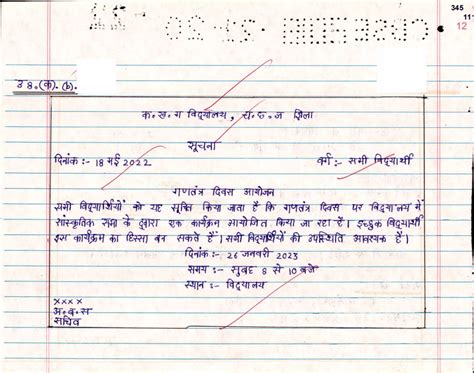 345
12
उ४.(क).(b).
क.ख.ग विद्यालय, च.छ.ज ज़िला
सूचना
दिनांक :- 18 मई 2022 वर्ग :- सभी विद्यार्थी
गणतंत्र दिवस आयोजन
सभी विद्यार्थियों को यह सूचित किया जाता है कि गणतंत्र दिवस पर विद्यालय में
सांस्कृतिक सभा के द्वारा एक कार्यक्रम आयोजित किया जा रहा है। इच्छुक विद्यार्थी
इस कार्यक्रम का हिस्सा बन सकते हैं। सभी विद्यार्थियों की उपस्थिति आवश्यक है।
दिनांक :- 26 जनवरी 2023
समय :- सुबह 8 से 10 बजे
स्थान :- विद्यालय
xxxx
अ.ब.स
सचिव